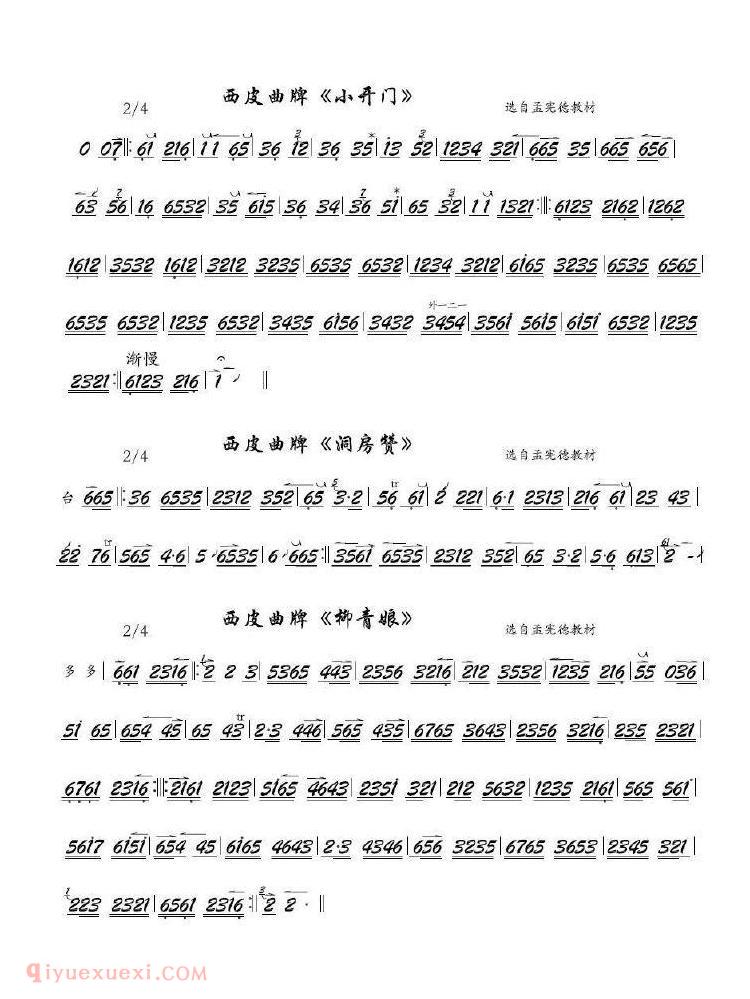 西皮曲牌《小开门》
2/4 选自孟宪德教材
0 07‖:61 216|11 65|36 12|36 35|13 52|1234 321|665 35|665 656|
63 56|16 6532|35 615|36 34|36 51|65 32|11 1321:‖:6123 2162|1262
1612|3532 1612|3212 3235|6535 6532|1234 3212|6165 3235|6535 6565|
外一二一
6535 6532|1235 6532|3435 6156|3432 3454|3561 5615|6151 6532|1235
渐慢
2321:‖6123 216|1 ‖
西皮曲牌《洞房赞》
2/4 选自孟宪德教材
台 665‖:36 6535|2312 352|65 3·2|56 61|2 221|6·1 2313|216 61|23 43|
22 76|565 4·6|5 6535|6 665:‖3561 6535|2312 352|65 3·2|5·6 613|2 -
西皮曲牌《柳青娘》
2/4 选自孟宪德教材
多多|661 2316‖:2 2 3|5365 443|2356 3216|212 3532|1235 216|55 036|
51 65|654 45|65 43|2·3 446|565 435|6765 3643|2356 3216|235 2321|
6761 2316:‖:2161 2123|5165 4643|2351 321|212 5632|1235 2161|565 561|
5617 6151|654 45|6165 4643|2·3 4346|656 3235|6765 3653|2345 321|
223 2321|6561 2316:‖2 2 · ‖
qiyuexuexi.COM